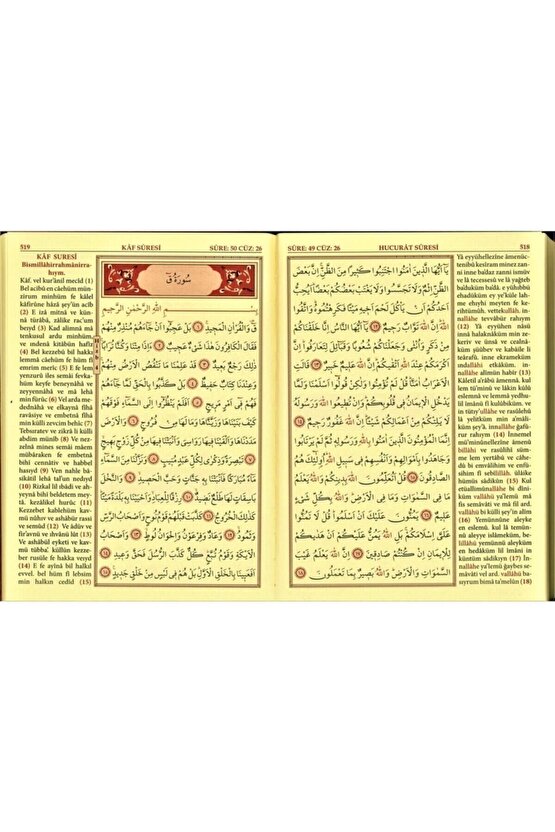 SÛRE: 49 CÜZ: 26 HUCURÂT SÛRESİ 518
يَا أَيُّهَا الَّذِينَ آمَنُوا اجْتَنِبُوا كَثِيرًا مِنَ الظَّنِّ إِنَّ بَعْضَ
الظَّنِّ إِثْمٌ وَلَا تَجَسَّسُوا وَلَا يَغْتَبْ بَعْضُكُمْ بَعْضًا أَيُحِبُّ
أَحَدُكُمْ أَنْ يَأْكُلَ لَحْمَ أَخِيهِ مَيْتًا فَكَرِهْتُمُوهُ وَاتَّقُوا
اللّٰهَ إِنَّ اللّٰهَ تَوَّابٌ رَحِيمٌ ﴿١٢﴾ يَا أَيُّهَا النَّاسُ إِنَّا خَلَقْنَاكُمْ
مِنْ ذَكَرٍ وَأُنْثَى وَجَعَلْنَاكُمْ شُعُوبًا وَقَبَائِلَ لِتَعَارَفُوا إِنَّ
أَكْرَمَكُمْ عِنْدَ اللّٰهِ أَتْقَيكُمْ إِنَّ اللّٰهَ عَلِيمٌ خَبِيرٌ ﴿١٣﴾ قَالَتِ
الْأَعْرَابُ آمَنَّا قُلْ لَمْ تُؤْمِنُوا وَلَكِنْ قُولُوا أَسْلَمْنَا وَلَمَّا
يَدْخُلِ الْإِيمَانُ فِي قُلُوبِكُمْ وَإِنْ تُطِيعُوا اللّٰهَ وَرَسُولَهُ
لَا يَلِتْكُمْ مِنْ أَعْمَالِكُمْ شَيْئًا إِنَّ اللّٰهَ غَفُورٌ رَحِيمٌ ﴿١٤﴾
إِنَّمَا الْمُؤْمِنُونَ الَّذِينَ آمَنُوا بِاللّٰهِ وَرَسُولِهِ ثُمَّ لَمْ يَرْتَابُوا
وَجَاهَدُوا بِأَمْوَالِهِمْ وَأَنْفُسِهِمْ فِي سَبِيلِ اللّٰهِ أُولَئِكَ هُمُ
الصَّادِقُونَ ﴿١٥﴾ قُلْ أَتُعَلِّمُونَ اللّٰهَ بِدِينِكُمْ وَاللّٰهُ يَعْلَمُ
مَا فِي السَّمَوَاتِ وَمَا فِي الْأَرْضِ وَاللّٰهُ بِكُلِّ شَيْءٍ
عَلِيمٌ ﴿١٦﴾ يَمُنُّونَ عَلَيْكَ أَنْ أَسْلَمُوا قُلْ لَا تَمُنُّوا
عَلَيَّ إِسْلَامَكُمْ بَلِ اللّٰهُ يَمُنُّ عَلَيْكُمْ أَنْ هَدَيكُمْ
لِلْإِيمَانِ إِنْ كُنْتُمْ صَادِقِينَ ﴿١٧﴾ إِنَّ اللّٰهَ يَعْلَمُ غَيْبَ
السَّمَوَاتِ وَالْأَرْضِ وَاللّٰهُ بَصِيرٌ بِمَا تَعْمَلُونَ ﴿١٨﴾
Yâ eyyühellezîne âmenüc-
tenibû kesîram minez zan-
ni inne ba'daz zanni ismüv
ve lâ tecessesû ve lâ yağteb
ba'duküm ba'dâ. e yühhibbü
ehadüküm ey ye'küle lah-
me ehîyhi meyten fe ke-
rihtümûh. vettekullâh. in-
nallâhe tevvâbür rahıym
(12) Yâ eyyühen nâsü
innâ halaknâküm min ze-
keriv ve ünsâ ve cealnâ-
küm şüûbev ve kabâile li
teârafû. inne ekrameküm
ındallâhi etkâküm. in-
nallâhe alîmün habîr (13)
Kâletil a'râbü âmennâ. kul
lem tü'minû ve lâkin kûlû
eslemnâ ve lemmâ yedhu-
lil îmânü fî kulûbiküm. ve
in tütıy'ullâhe ve rasûlehû
lâ yelitküm min a'mâli-
küm şey'â. innallâhe ğafû-
rur rahıym (14) İnnemel
mü'minûnellezîne âmenû
billâhi ve rasûlihî süm-
me lem yertâbû ve câhe-
dû bi emvâlihim ve enfü-
sihim fî sebîlillâh. ülâike
hümüs sâdikûn (15) Kul
etüallimûnallâhe bi dîni-
küm. vallâhü ya'lemü mâ
fis semâvâti ve mâ fil ard.
vallâhü bi külli şey'in alîm
(16) Yemünnûne aleyke
en eslemû. kul lâ temün-
nû aleyye islâmeküm, be-
lillâhü yemünnü aleyküm
en hedâküm lil îmâni in
küntüm sâdikıyn (17) İn-
nallâhe ya'lemü ğaybes se-
mâvâti vel ard. vallâhü ba-
sıyrum bimâ ta'melûn (18)
519 KÂF SÛRESİ SÛRE: 50 CÜZ: 26
سُورَةُ قٓ
بِسْمِ اللّٰهِ الرَّحْمٰنِ الرَّحِيمِ
قٓ وَالْقُرْآنِ الْمَجِيدِ ﴿١﴾ بَلْ عَجِبُوا أَنْ جَاءَهُمْ مُنْذِرٌ مِنْهُمْ
فَقَالَ الْكَافِرُونَ هَذَا شَيْءٌ عَجِيبٌ ﴿٢﴾ ءَإِذَا مِتْنَا وَكُنَّا تُرَابًا
ذَلِكَ رَجْعٌ بَعِيدٌ ﴿٣﴾ قَدْ عَلِمْنَا مَا تَنْقُصُ الْأَرْضُ مِنْهُمْ
وَعِنْدَنَا كِتَابٌ حَفِيظٌ ﴿٤﴾ بَلْ كَذَّبُوا بِالْحَقِّ لَمَّا جَاءَهُمْ
فَهُمْ فِي أَمْرٍ مَرِيجٍ ﴿٥﴾ أَفَلَمْ يَنْظُرُوا إِلَى السَّمَاءِ فَوْقَهُمْ
كَيْفَ بَنَيْنَاهَا وَزَيَّنَّاهَا وَمَا لَهَا مِنْ فُرُوجٍ ﴿٦﴾ وَالْأَرْضَ
مَدَدْنَاهَا وَأَلْقَيْنَا فِيهَا رَوَاسِيَ وَأَنْبَتْنَا فِيهَا مِنْ كُلِّ زَوْجٍ بَهِيجٍ
﴿٧﴾ تَبْصِرَةً وَذِكْرَى لِكُلِّ عَبْدٍ مُنِيبٍ ﴿٨﴾ وَنَزَّلْنَا مِنَ السَّمَاءِ
مَاءً مُبَارَكًا فَأَنْبَتْنَا بِهِ جَنَّاتٍ وَحَبَّ الْحَصِيدِ ﴿٩﴾ وَالنَّخْلَ
بَاسِقَاتٍ لَهَا طَلْعٌ نَضِيدٌ ﴿١٠﴾ رِزْقًا لِلْعِبَادِ وَأَحْيَيْنَا بِهِ بَلْدَةً مَيْتًا
كَذَلِكَ الْخُرُوجُ ﴿١١﴾ كَذَّبَتْ قَبْلَهُمْ قَوْمُ نُوحٍ وَأَصْحَابُ الرَّسِّ
وَثَمُودُ ﴿١٢﴾ وَعَادٌ وَفِرْعَوْنُ وَإِخْوَانُ لُوطٍ ﴿١٣﴾ وَأَصْحَابُ
الْأَيْكَةِ وَقَوْمُ تُبَّعٍ كُلٌّ كَذَّبَ الرُّسُلَ فَحَقَّ وَعِيدِ ﴿١٤﴾
أَفَعَيِينَا بِالْخَلْقِ الْأَوَّلِ بَلْ هُمْ فِي لَبْسٍ مِنْ خَلْقٍ جَدِيدٍ ﴿١٥﴾
KÂF SURESİ
Bismillâhirrahmânirra-
hıym.
Kâf. vel kur'ânil mecîd (1)
Bel acibû en câehüm mün-
zirum minhüm fe kâlel
kâfirûne hâzâ şey'ün acîb
(2) E izâ mitnâ ve kün-
nâ türâbâ, zâlike rac'um
beıyd (3) Kad alimnâ mâ
tenkusul ardu minhüm.
ve ındenâ kitâbün hafîyz
(4) Bel kezzebû bil hakkı
lemmâ câehüm fe hüm fî
emrim merîc (5) E fe lem
yenzurû iles semâi fevka-
hüm keyfe beneynâhâ ve
zeyyennâhâ ve mâ lehâ
min fürûc (6) Vel arda me-
dednâhâ ve elkaynâ fîhâ
ravâsiye ve embetnâ fîhâ
min külli zevcim behîc (7)
Tebsıratev ve zikrâ li külli
abdim münîb (8) Ve nez-
zelnâ mines semâi mâem
mübâraken fe embetnâ
bihî cennâtiv ve habbel
hasıyd (9) Ven nahle bâ-
sikâtil lehâ tal'un nedıyd
(10) Rizkal lil ıbâdi ve ah-
yeynâ bihî beldetem mey-
tâ. kezâlikel hurûc (11)
Kezzebet kablehüm kav-
mü nûhıv ve ashâbür rassi
ve semûd (12) Ve âdüv ve
fir'avnü ve ıhvânü lût (13)
Ve ashâbül eyketi ve kav-
mü tübba'. küllün kezze-
ber rusüle fe hakka veıyd
(14) E fe ayînâ bil halkıl
evvel. bel hüm fî lebsim
min halkın cedîd (15)